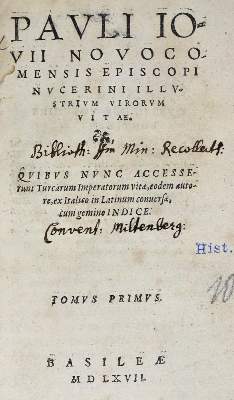 PAVLI IO-
VII NOVOCO-
MENSIS EPISCOPI
NVCERINI ILLV-
STRIVM VIRORVM
VITAE.
Biblioth: Min: Recollect:
QVIBVS NVNC ACCESSE-
runt Turcarum Imperatorum vitæ, eodem auto-
re, ex Italico in Latinum conuersæ,
cum gemino INDICE.
Convent: Miltenberg:
Hist.
TOMVS PRIMVS.
BASILEÆ
MDLXVII.